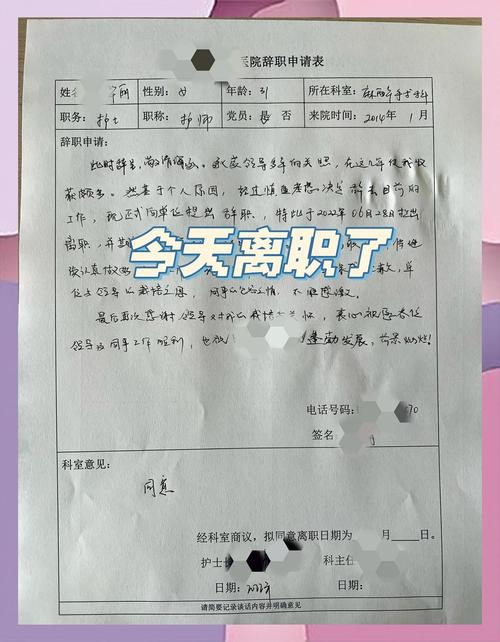 医院辞职申请表
姓名 丽 性别: 女 年龄: 31 所在科室: 麻醉手术科
职务: 护士 职称: 护师 党员: 是 否 来院时间: 2014年1月
辞职申请:
此时辞呈, 敬请谅解。承蒙领导多年的关照, 在这几年使我收
获颇多。然基于个人原因, 经过慎重考虑决定辞去目前的
工作, 现正式向单位提出辞职, 特此于2022年06月28日提出
离职,
今天离职了
领导 栽培之恩, 同事 之情, 不胜感激。
最后再次感谢领导对我 栽培 , 衷心祝愿各位
领导及同事工作顺利, 也祝 蓬勃发展, 前景灿烂!
电话号码: 70
签名
科室意见:
同意
经科室商议, 拟同意离职日期为 月 日。
护士长 科主任
日期: 日期:
请简要记录谈话内容并明确意见